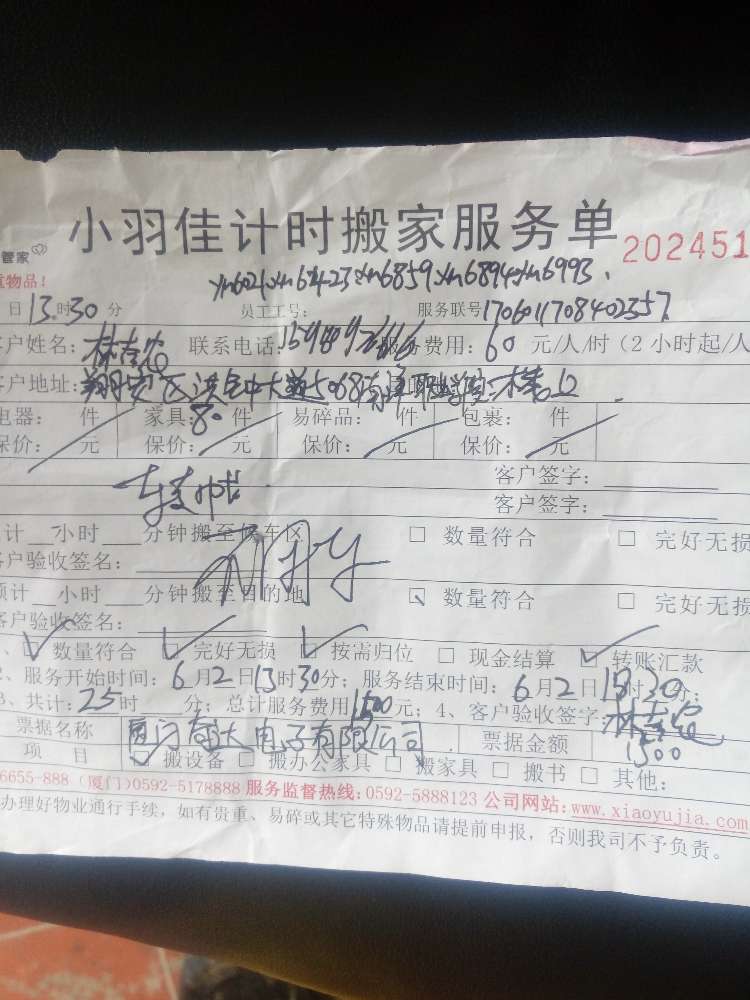 小羽佳计时搬家服务单 202451
管家
重物品!
xm6021xm6423xm6859xm6894xm6993.
日13时30分 员工工号: 服务联号170601170840
客户姓名:林 联系电话: 服务费用:60元/人/时(2小时起/人
客户地址:翔安区洪钟大道5068南洋职业学院 楼
电器: 件 家具:80件 易碎品: 件 包裹: 件
保价: 元 保价: 元 保价: 元 保价: 元
客户签字:
客户签字:
计 小时 分钟搬至候车区 □ 数量符合 □ 完好无损
客户验收签名:
预计 小时 分钟搬至目的地 □ 数量符合 □ 完好无损
客户验收签名:
、□ 数量符合 □ 完好无损 □ 按需归位 □ 现金结算 □ 转账汇款
2、服务开始时间:6月2日13时30分;服务结束时间:6月2日18时30分;
3、共计:25时 分;总计服务费用1500元;4、客户验收签字:林
票据名称 厦门 大电子有限公司 票据金额 1500
项目 □ 搬设备 □ 搬办公家具 □ 搬家具 □ 搬书 □ 其他:
6655-888 (厦门)0592-5178888 服务监督热线:0592-5888123 公司网站:www.xiaoyujia.com
办理好物业通行手续,如有贵重、易碎或其它特殊物品请提前申报,否则我司不予负责。